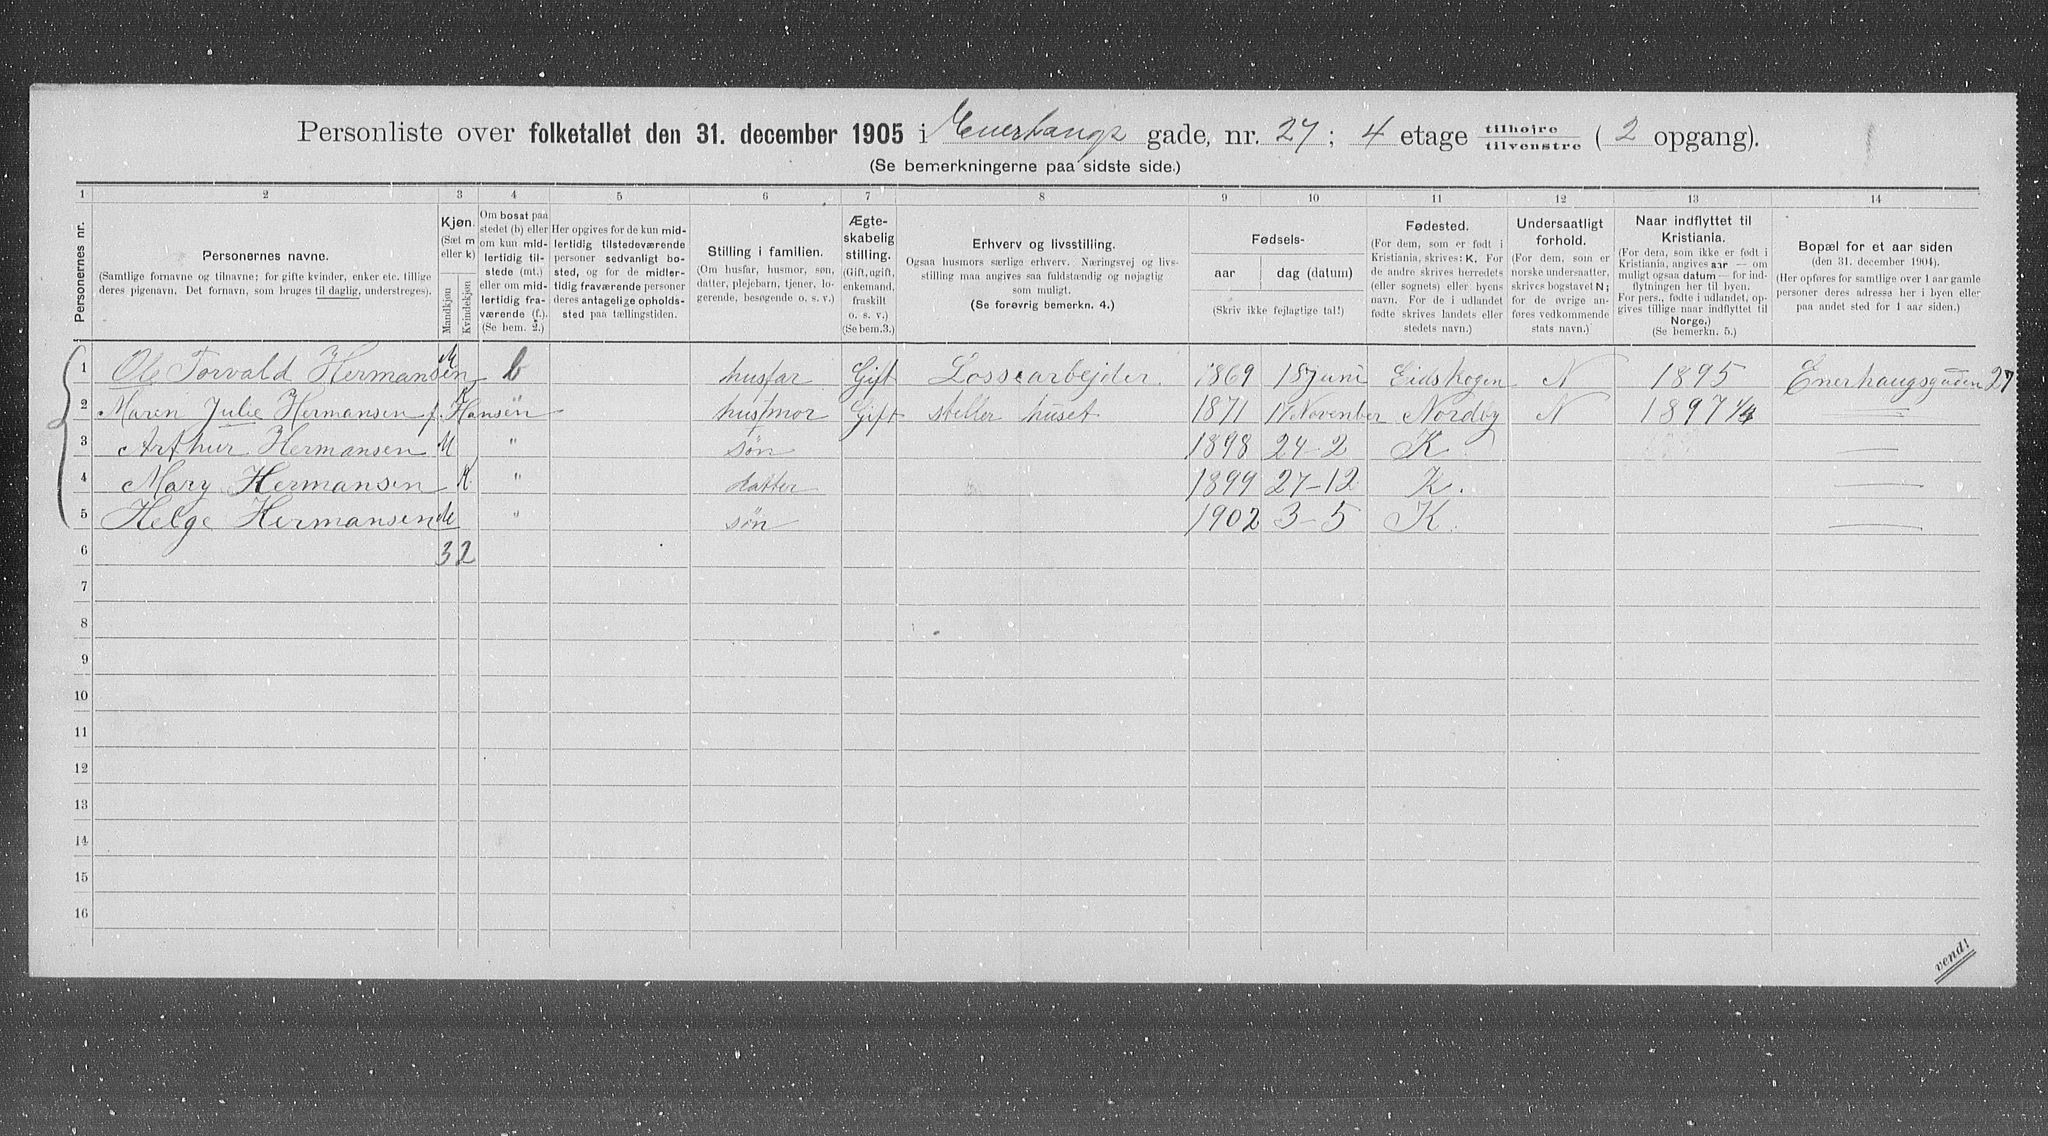 Personliste over folketallet den 31. december 1905 i Enerhaugs gade, nr. 27; 4 etage tilhøjre tilvenstre ( 2 opgang).
(Se bemerkningerne paa sidste side.)
1 2 3 4 5 6 7 8 9 10 11 12 13 14
Personernes nr.
Personernes navne.
(Samtlige fornavne og tilnavne; for gifte kvinder, enker etc. tillige
deres pigenavn. Det fornavn, som bruges til daglig, understreges).
Kjøn.
(Sæt m
eller k)
Mandkjøn
Kvindekjøn
Om bosat paa
stedet (b) eller
om kun mid-
lertidig til-
stede (mt.)
eller om mid-
lertidig fra-
værende (f.).
(Se bem. 2.)
Her opgives for de kun mid-
lertidig tilstedeværende
personer sedvanlig bo-
sted, og for de midler-
tidig fraværende personer
deres antagelige opholds-
sted paa tællingstiden.
Stilling i familien.
(Om husfar, husmor, søn,
datter, plejebarn, tjener, lo-
gerende, besøgende o. s. v.)
Ægte-
skabelig
stilling.
(Gift, ugift,
enkemand,
fraskilt
o. s. v.)
(Se bem.3.)
Erhverv og livsstilling.
Ogsaa husmors særlige erhverv. Næringsvej og livs-
stilling maa angives saa fuldstændig og nøjagtig
som muligt.
(Se forøvrig bemerkn. 4.)
Fødsels-
aar dag (datum)
(Skriv ikke fejlagtige tal!)
Fødested.
(For dem, som er født i
Kristiania, skrives: K. For
de andre skrives herredets
(eller sognets) eller byens
navn. For de i udlandet
fødte skrives landets eller
stedets navn.)
Undersaatligt
forhold.
(For dem, som er
norske undersaatter,
skrives bogstavet N;
for de øvrige an-
føres vedkommende
stats navn.)
Naar indflyttet til
Kristiania.
(For dem, som ikke er født i
Kristiania, angives aar — om
muligt ogsaa datum — for ind-
flytningen her til byen.
For pers., fødte i udlandet, op-
gives tillige naar indflyttet til
Norge.)
(Se bemerkn. 5.)
Bopæl for et aar siden
(den 31. december 1904).
(Her opføres for samtlige over 1 aar gamle
personer deres adresse her i byen eller
paa andet sted for 1 aar siden.)
1 Ole Torvald Hermansen M b husfar Gift Lossearbejder. 1869 15 Juni Eidskogen N 1895 Enerhaugsgaden 27
2 Maren Julie Hermansen f. Hansen K " husmor Gift steller huset 1871 17 November Nordby N 1897 1/4 —"—
3 Arthur Hermansen M " søn 1898 24-2 K. —"—
4 Mary Hermansen K " datter 1899 27-12 K. —"—
5 Helge Hermansen M " søn 1902 3-5 K. —"—
6 3 2
7
8
9
10
11
12
13
14
15
16
vend!